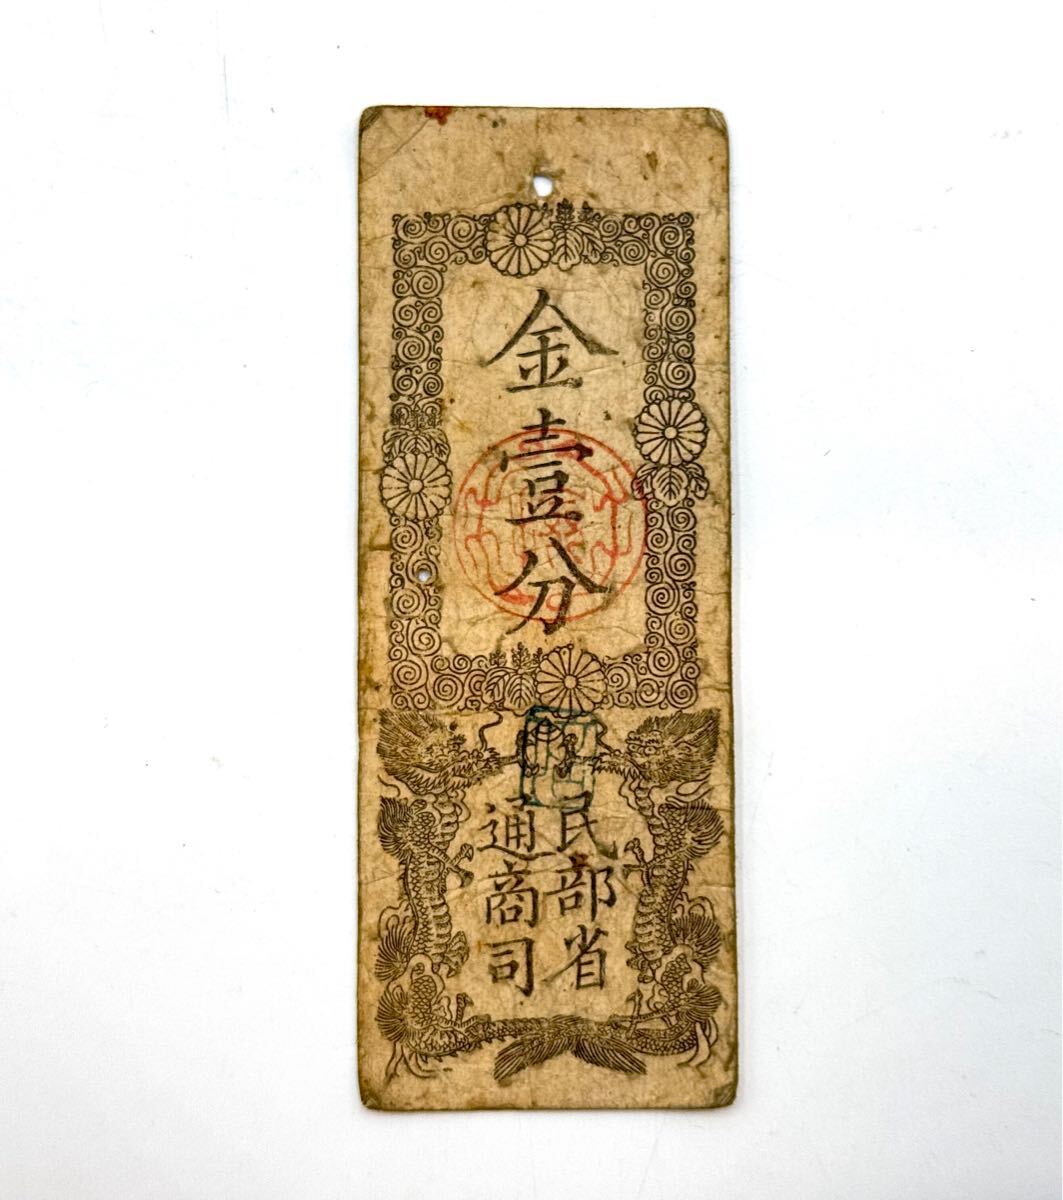 金壹分
民部省
通商司